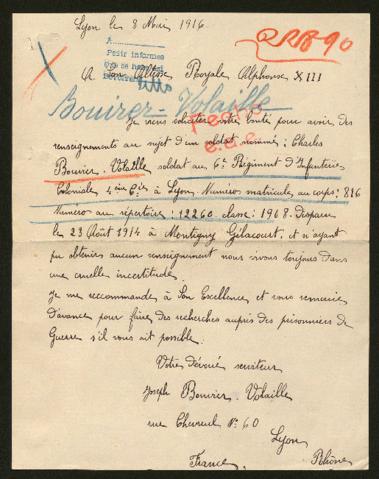 Lyon le 8 Mai 1916
RRB 90
A
Pedir informes
A Son Altesse Royale Alphonse XIII
Bouvier-Volaille
Je viens solliciter votre bonté pour avoir des
renseignements au sujet d'un soldat nommé: Charles
Bouvier-Volaille soldat au 6e Régiment d'Infanterie
Coloniale 4ième Cie à Lyon Numéro matricule au corps: 816
Numéro au répertoire: 12260 classe: 1908. Disparu
le 23 Août 1914 à Montigny Gélacourt, et n'ayant
pu obtenir aucun renseignement nous vivons toujours dans
une cruelle incertitude.
Je me recommande à Son Excellence et vous remercie
d'avance pour faire des recherches auprès des prisonniers de
Guerre s'il vous est possible.
Votre dévoué serviteur
Joseph Bouvier-Volaille
rue Chevreul No 60
Lyon
France. Rhône